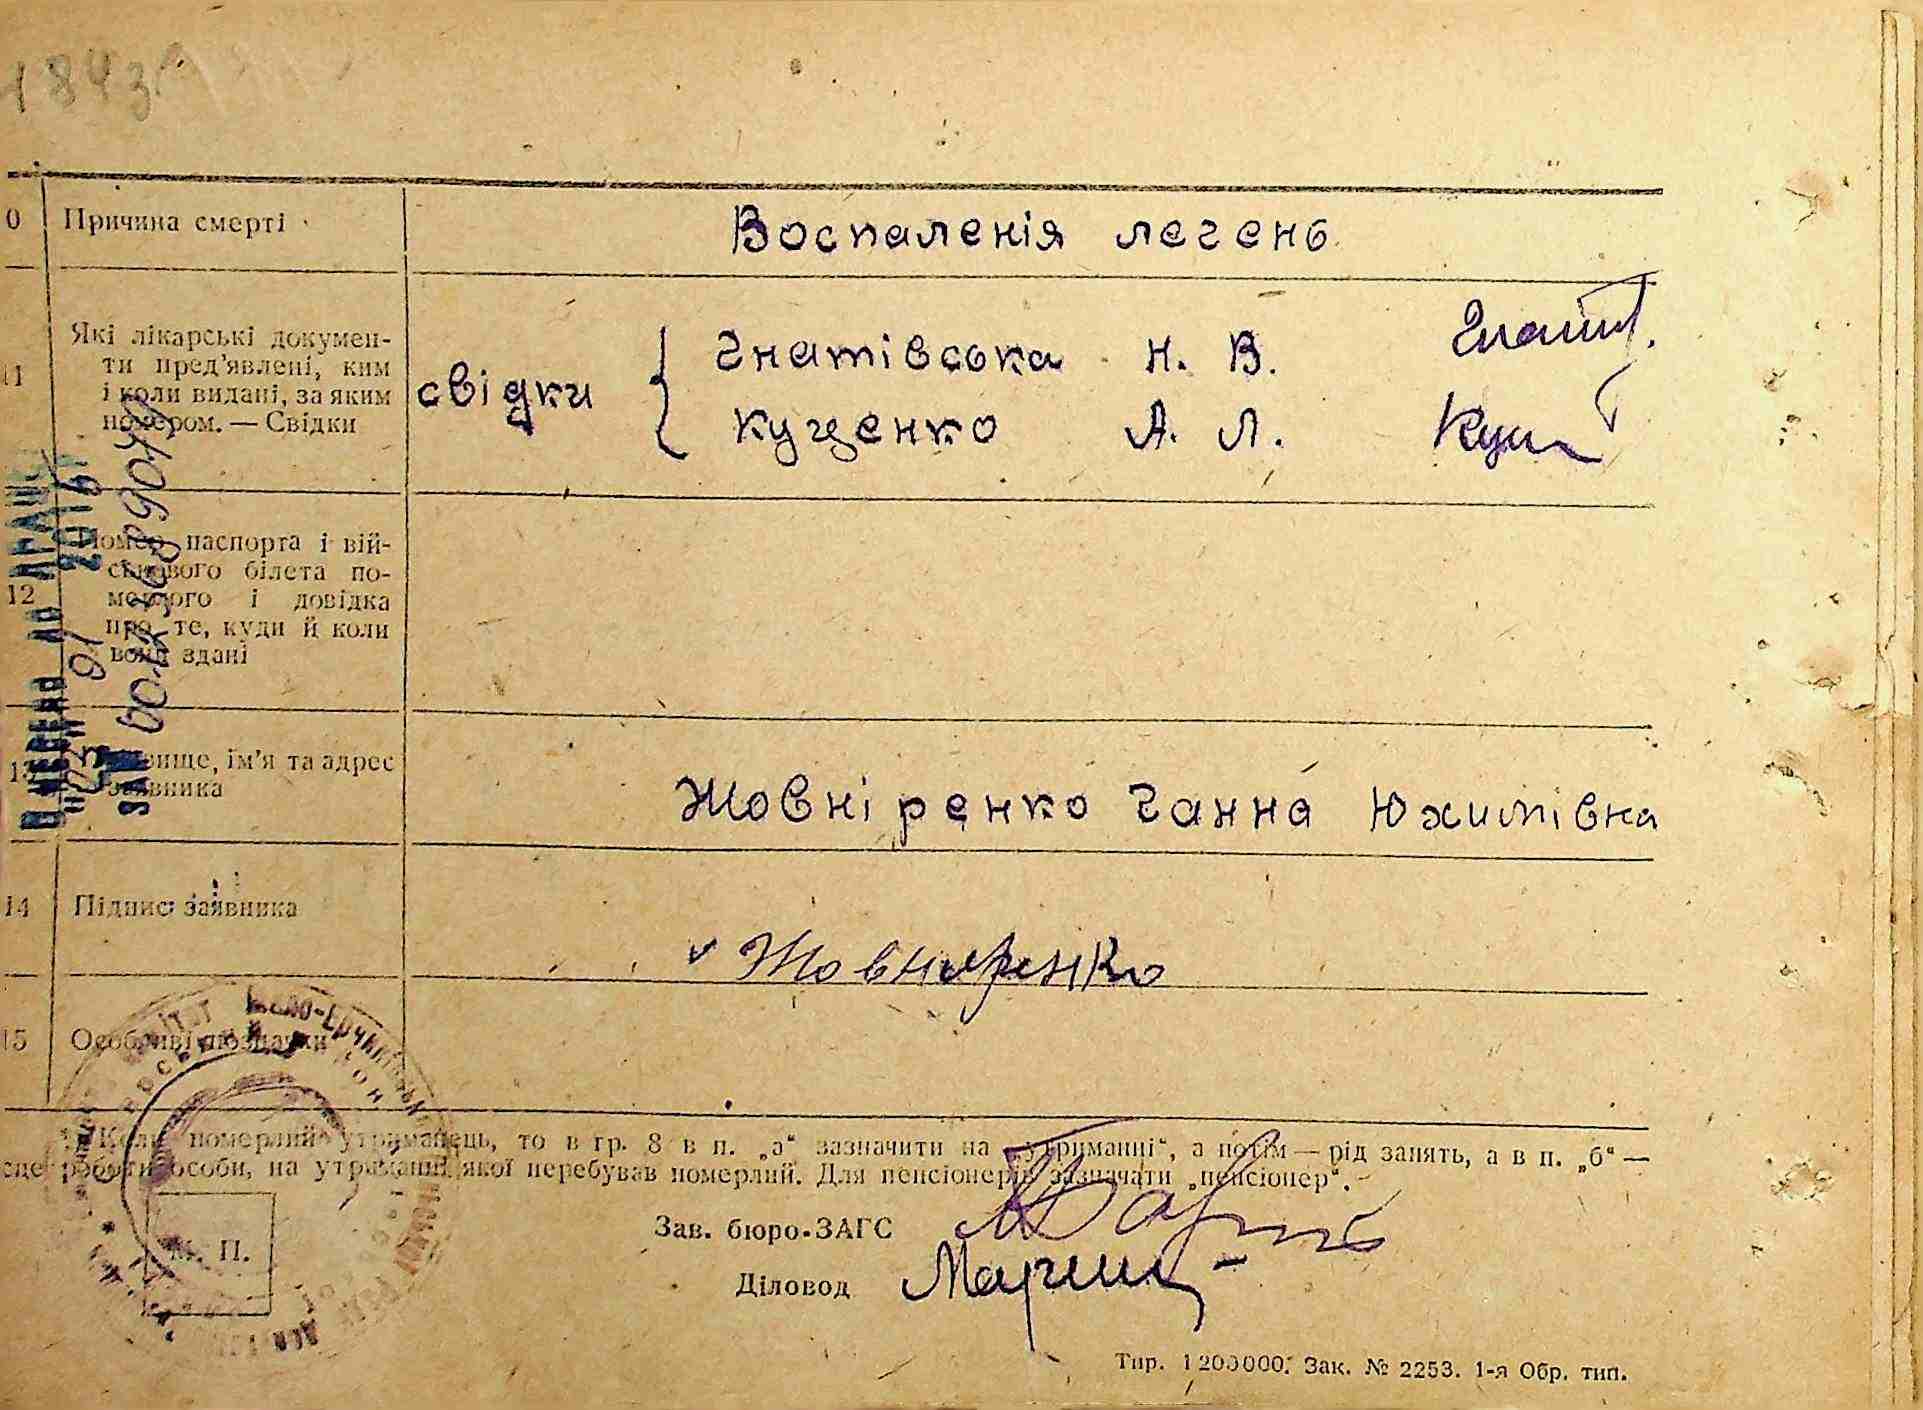 0 Причина смерті Воспаленія легень
11 Які лікарські докумен-
ти пред’явлені, ким
і коли видані, за яким
номером. — Свідки
свідки { Гнатівська Н. В.
Куценко А. Л.
12 Номер паспорта і вій-
ськового білета по-
мерлого і довідка
про те, куди й коли
вони здані
13 Прізвище, ім’я та адрес
заявника
Жовніренко Ганна Юхимівна
14 Підпис заявника
Жовниренко
15 Особливі позначки
Коли померлий утриманець, то в гр. 8 в п. „а“ зазначити на „утриманні“, а потім — рід занять, а в п. „б“ —
сце роботи особи, на утриманні якої перебував померлий. Для пенсіонерів зазначати „пенсіонер“.
Зав. бюро ЗАГС
Діловод
М. П.
Тир. 1200000. Зак. № 2253. 1-я Обр. тип.